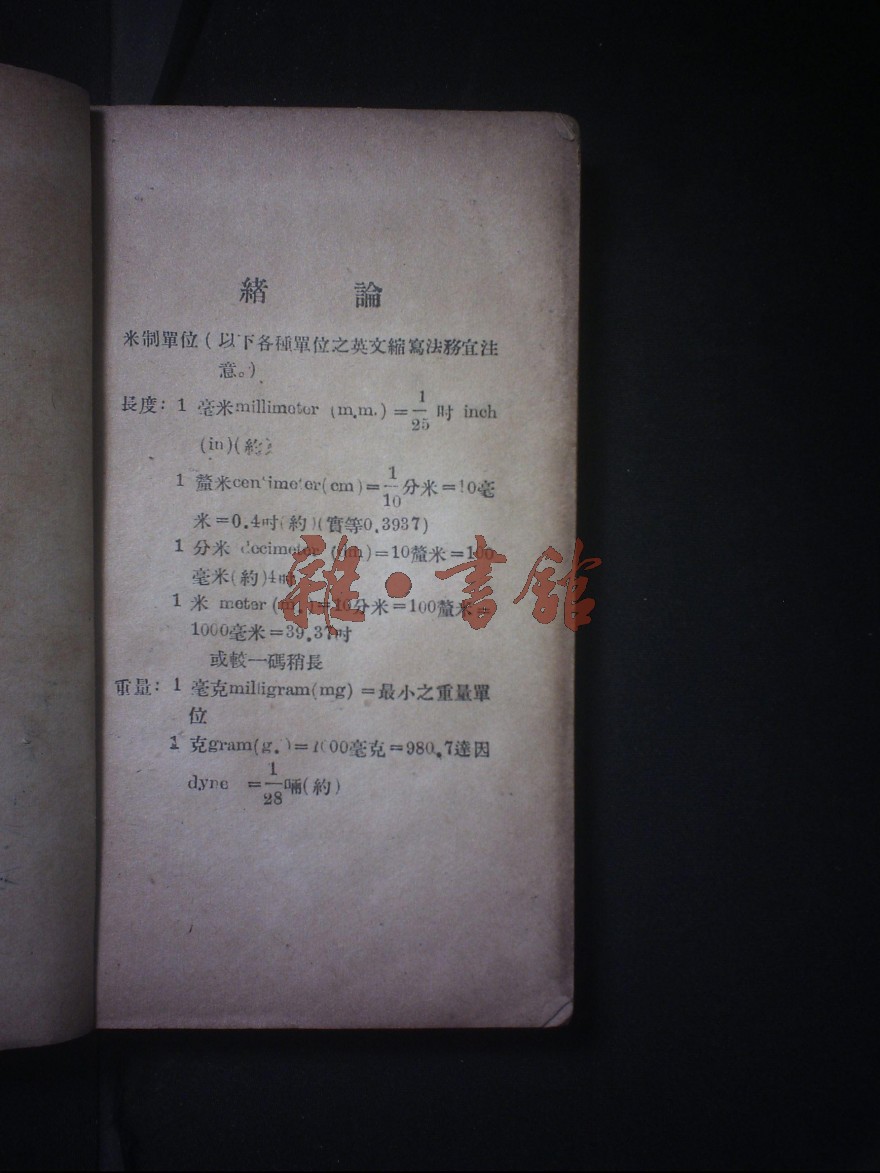 緒　論
米制單位(以下各種單位之英文縮寫法務宜注
意。)
長度: 1 毫米millimeter (m.m.)=1/25 吋 inch
(in)(約)
1 釐米centimeter(cm)=1/10分米=10毫
米=0.4吋(約)(實等0.3937)
1 分米 decimeter (dm)=10釐米=100
毫米(約)4吋
1 米 meter (m.)=10分米=100釐米=
1000毫米=39.37吋
或較一碼稍長
重量: 1 毫克milligram(mg)=最小之重量單
位
1 克gram(g.)=1000毫克=980.7達因
dyne =1/28啢(約)
雜·書館